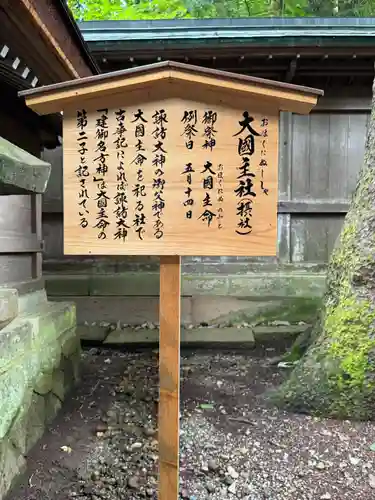 大國主社（摂社）
おほくにぬししゃ
御祭神　大国主命
おおくにぬしのみこと
例祭日　五月十四日
諏訪大神の御父神である
大国主命を祀る社で
古事記によれば諏訪大神
「建御名方神は大国主命の
第二子と記されている